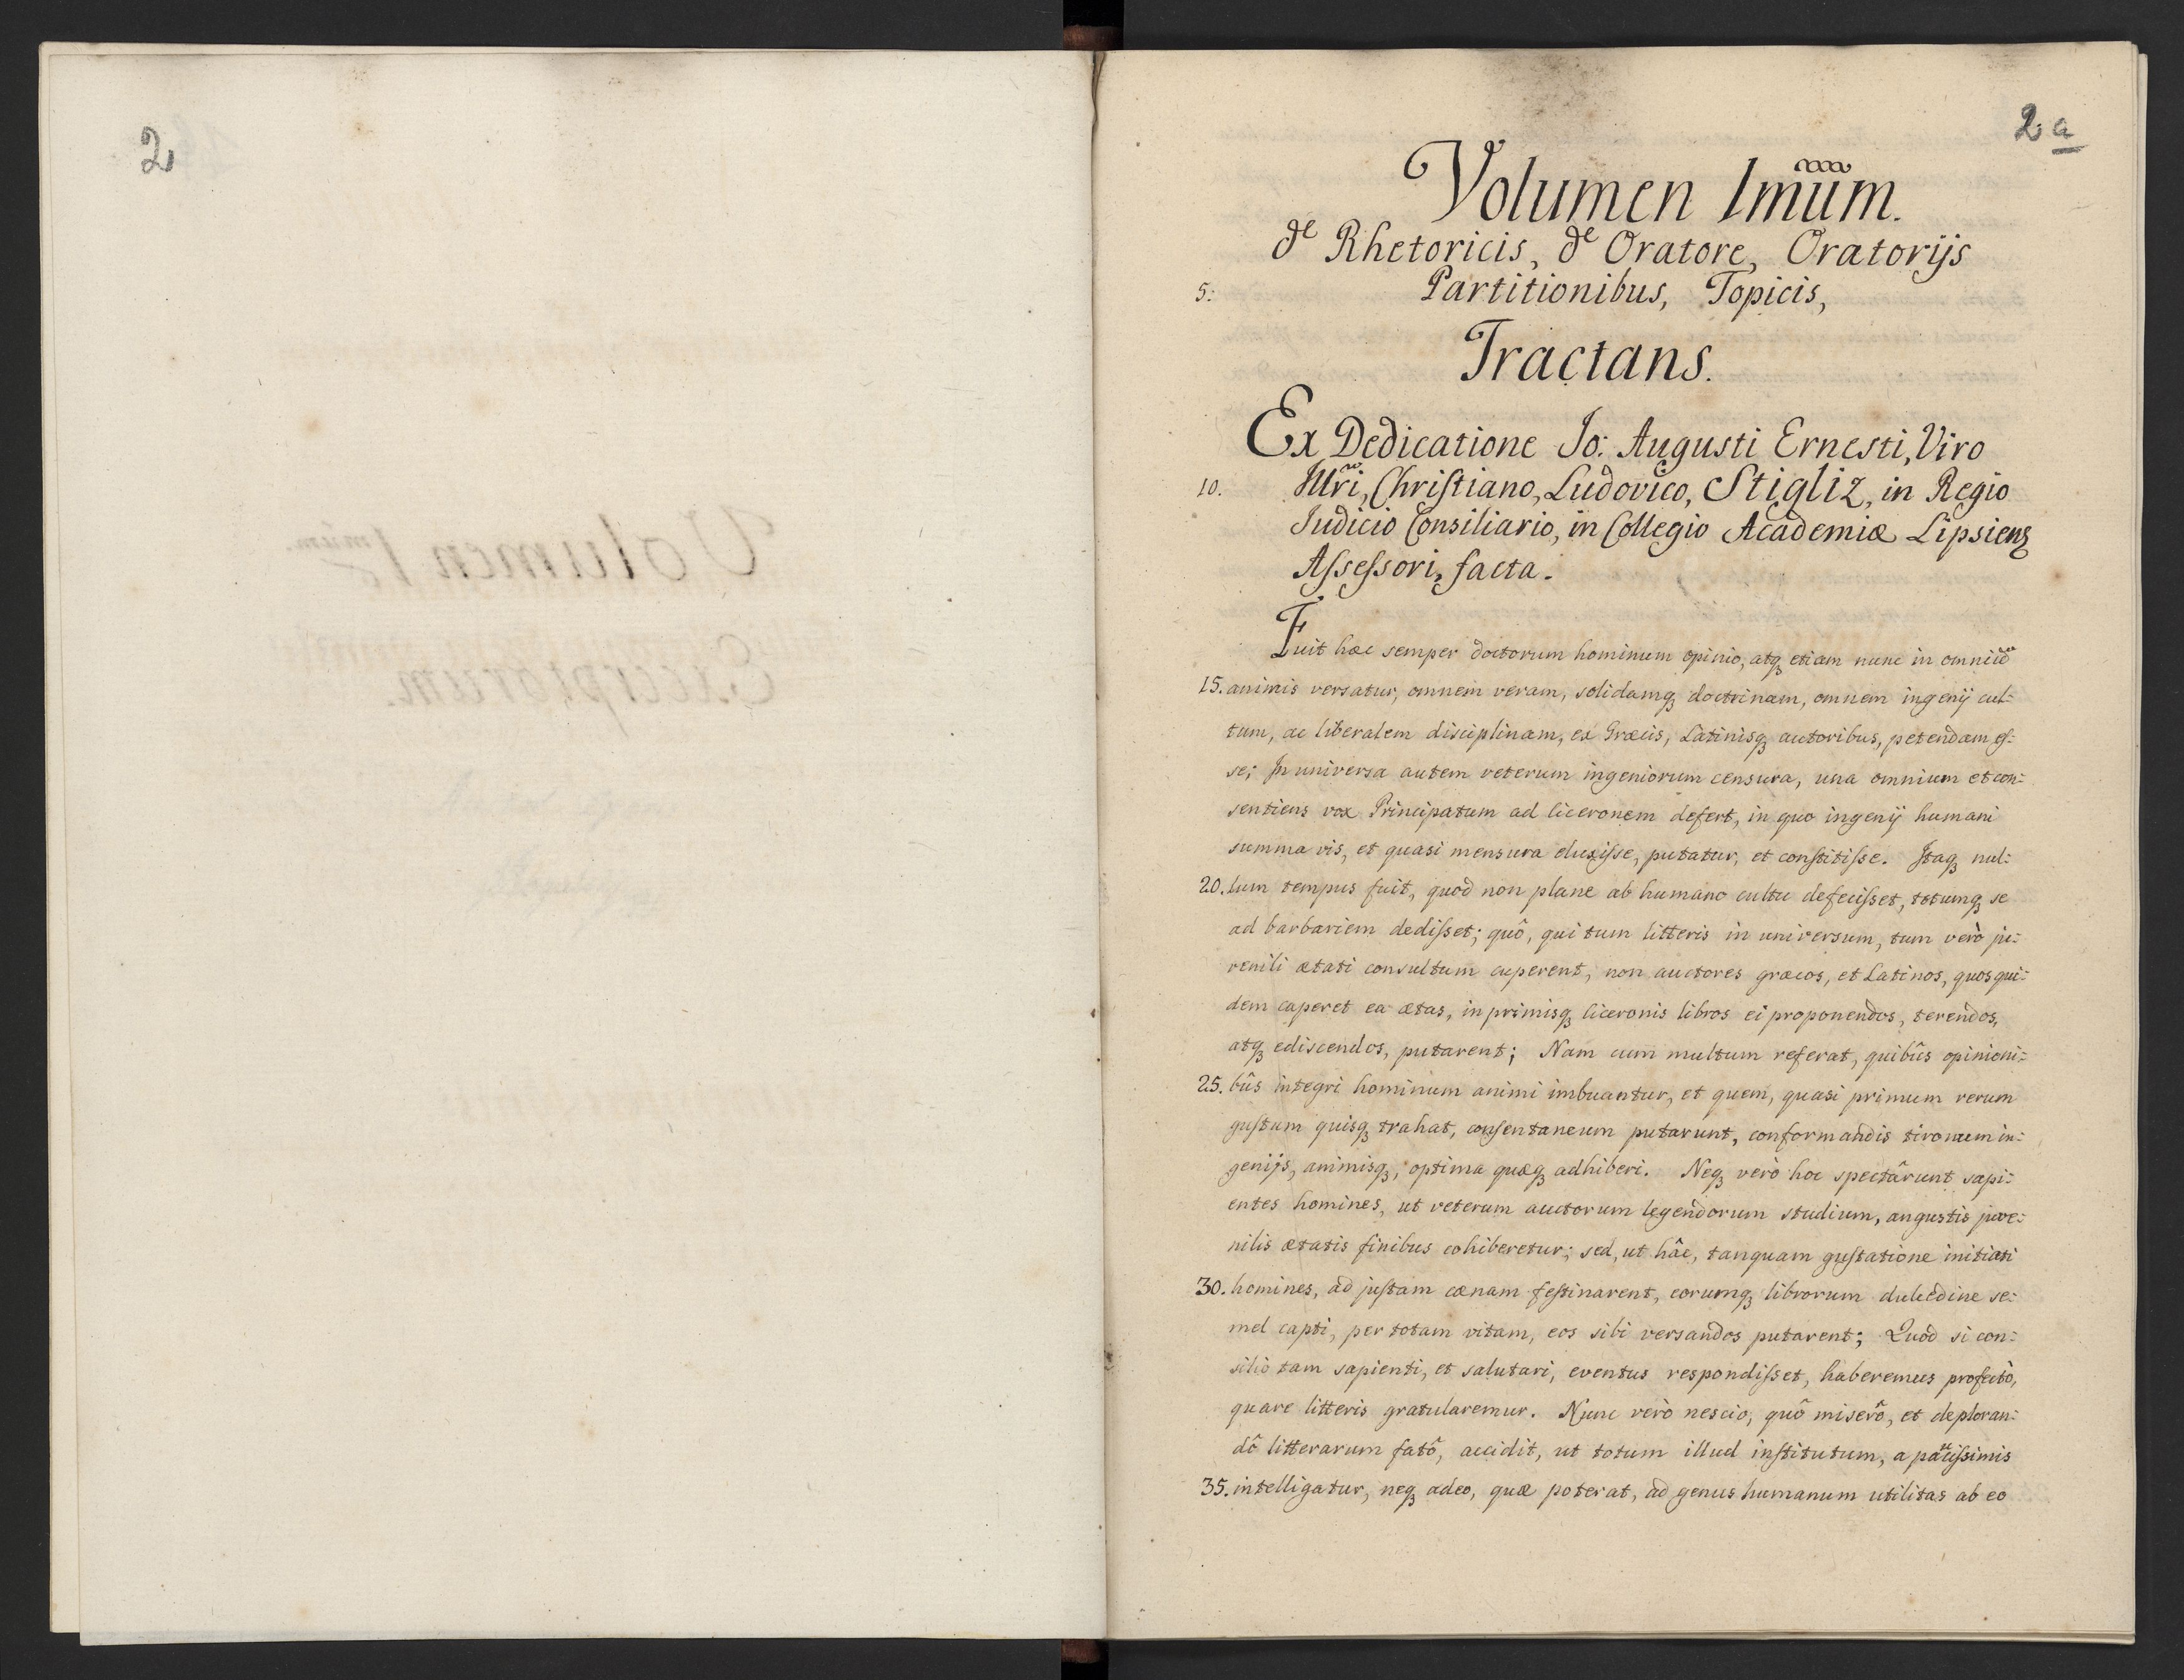 2
2.a
Volumen Imum.
de Rhetoricis, de Oratore, Oratorijs
5. Partitionibus, Topicis,
Tractans.
Ex Dedicatione Jo: Augusti Ernesti, Viro
10. Illri, Christiano, Ludovico, Stigliz, in Regio
Judicio Consiliario, in Collegio Academiæ Lipsiens
Assessori, facta.
Fuit hæc semper doctorum hominum opinio, atq etiam nunc in omniū
15. animis versatur, omnem veram, solidamq doctrinam, omnem ingenij cul:
tum, ac liberalem disciplinam, ex Græcis, Latinisq autoribus, petendam es:
se; In universa autem veterum ingeniorum censura, una omnium et con:
sentiens vox Principatum ad Ciceronem defert, in quo ingenij humani
summa vis, et quasi mensura eluxisse, putatur, et constitisse. Itaq nul:
20. lum tempus fuit, quod non plane ab humano cultu defecisset, totumq se
ad barbariem dedisset; quô, qui tum litteris in universum, tum verò ju:
venili ætati consultum cuperent, non auctores græcos, et Latinos, quos qui:
dem caperet ea ætas, in primisq Ciceronis libros ei proponendos, terendos,
atq ediscendos, putarent; Nam cum multum referat, quibûs opinioni:
25. bûs integri hominum animi imbuantur, et quem, quasi primum rerum
gustum quisq trahat, consentaneum putarunt, conformandis tironum in:
genijs, animisq, optima quæq adhiberi. Neq verò hoc spectârunt sapi:
entes homines, ut veterum auctorum legendorum studium, angustis juve:
nilis ætatis finibus cohiberetur; sed, ut hâc, tanquam gustatione initiati
30. homines, ad justam cænam festinarent, eorumq librorum dulcedine se:
mel capti, per totam vitam, eos sibi versandos putarent; Quod si con:
silio tam sapienti, et salutari, eventus respondisset, haberemus profectò,
quare litteris gratularemur. Nunc verò nescio, quô miserô, et deploran:
dô litterarum fatô, accidit, ut totum illud institutum, a paucissimis
35. intelligatur, neq adeo, quæ poterat, ad genus humanum utilitas ab eo